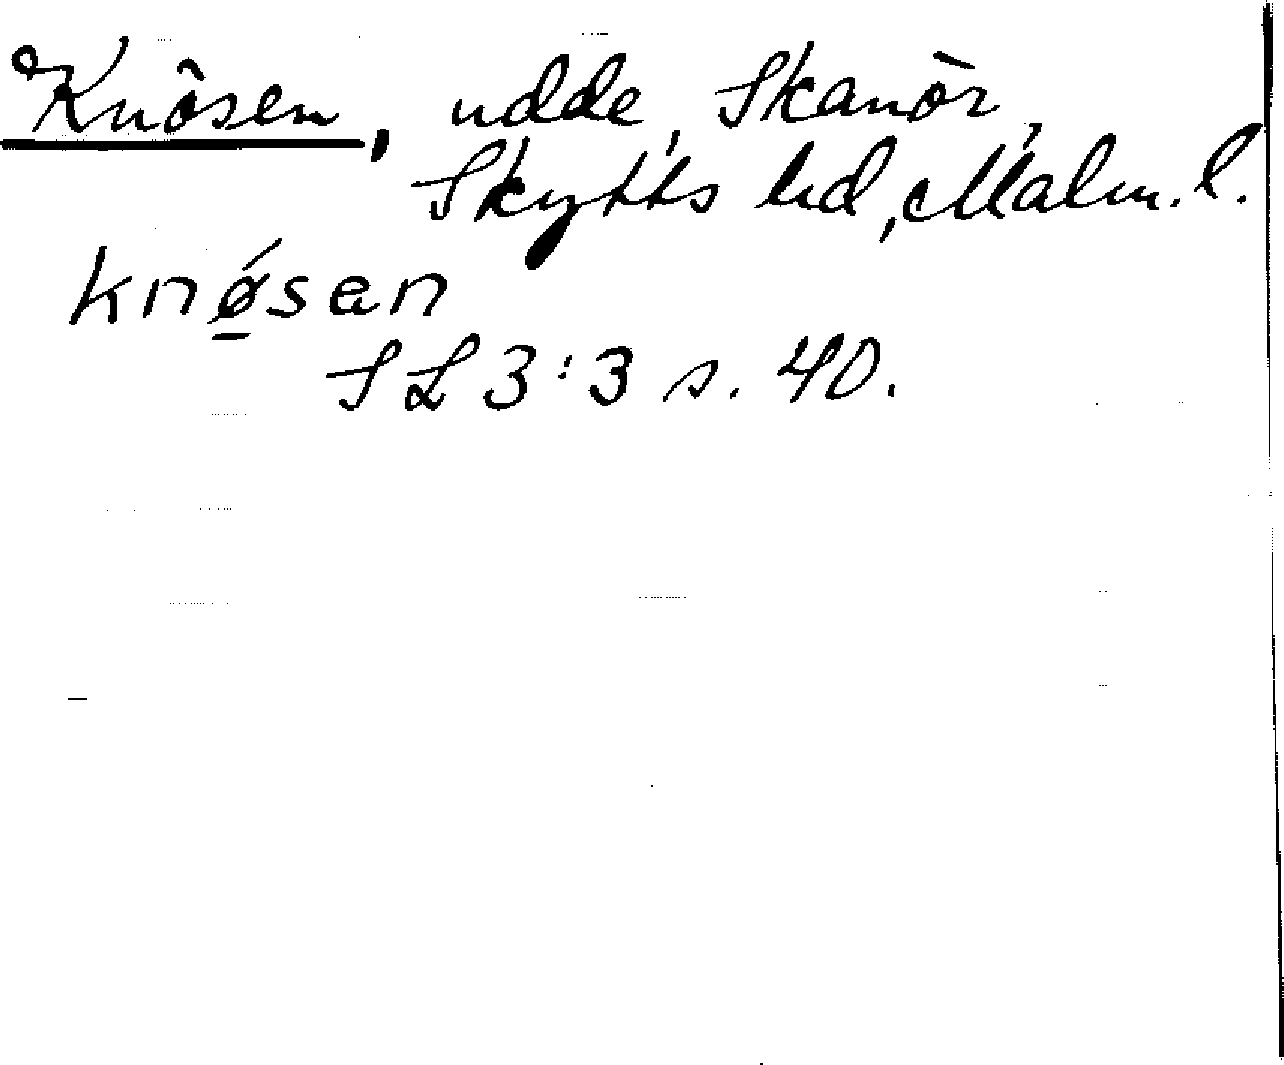 Knösen, udde, Skanör,
Skytts hd, Malm. l.
knǿ̱sen
SL 3:3 s. 40.